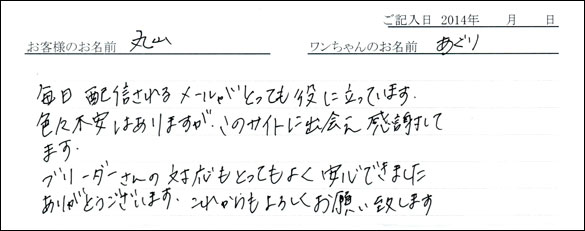 ご記入日 2014年 月 日
お客様のお名前 丸山 ワンちゃんのお名前 あぐり
毎日 配信されるメールがとっても役に立っています.
色々不安はありますが、このサイトに出会え 感謝して
ます.
ブリーダーさんの 対応もとってもよく 安心できました
ありがとうございます. これからもよろしくお願い致します